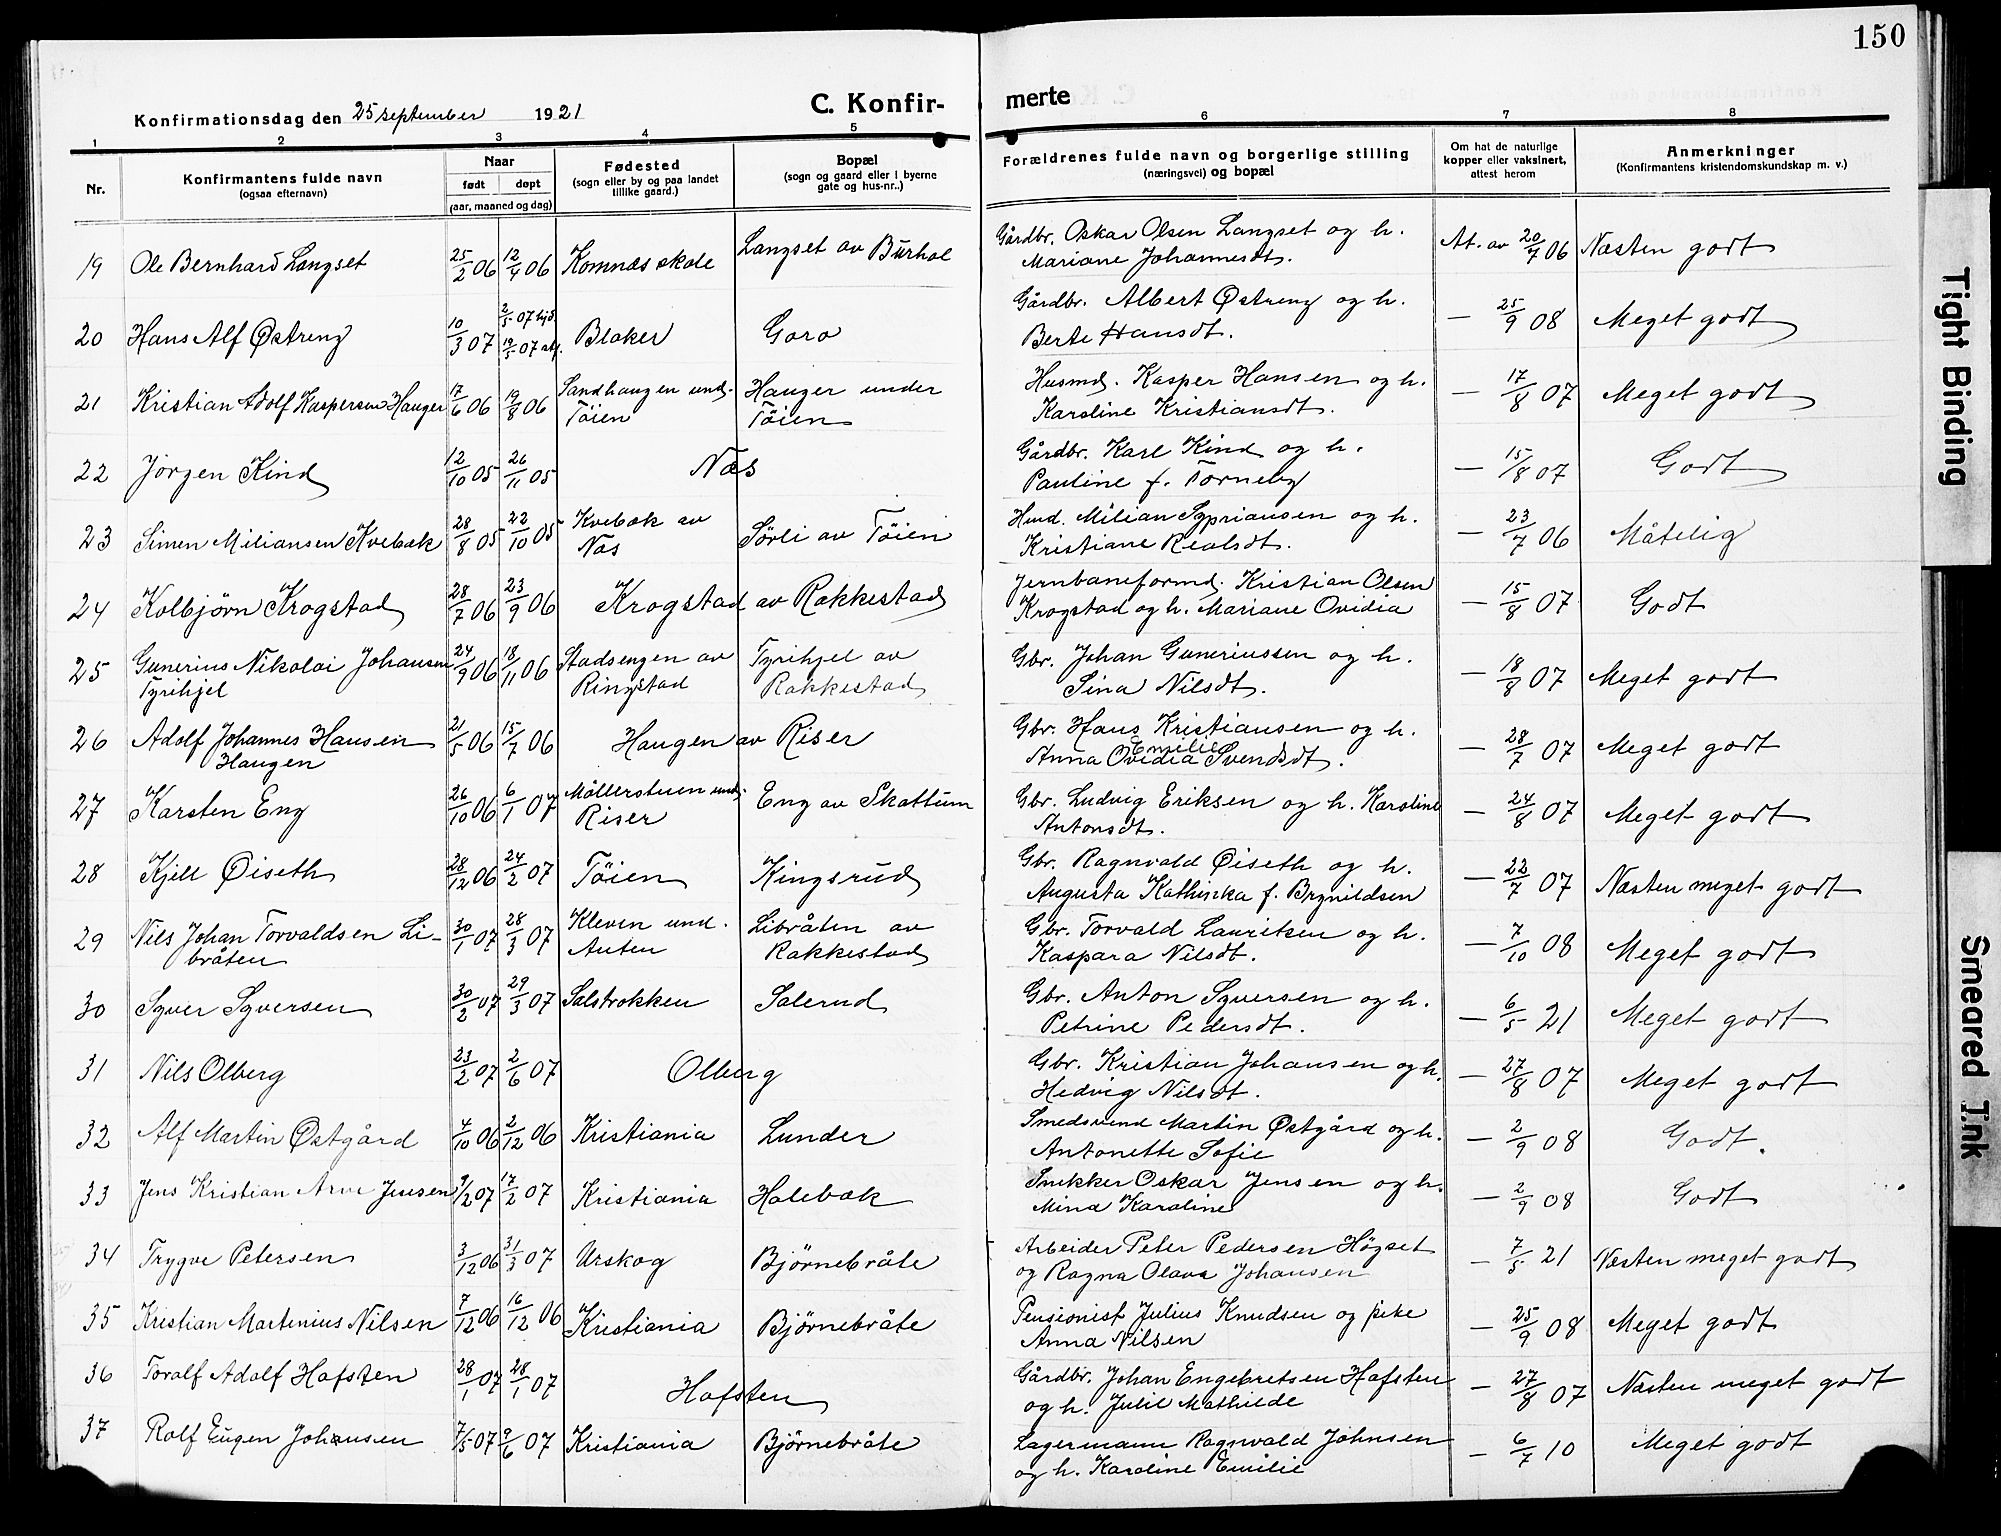 150
Konfirmationsdag den 25 september 1921
C. Konfir-
merte
1 2 3 4 5 6 7 8
Nr.
Konfirmantens fulde navn
(ogsaa efternavn)
Naar
født døpt
(aar, maaned og dag)
Fødested
(sogn eller by og paa landet
tillike gaard.)
Bopæl
(sogn og gaard eller i byerne
gate og hus-nr..)
Forældrenes fulde navn og borgerlige stilling
(næringsvei) og bopæl
Om hat de naturlige
kopper eller vaksinert,
attest herom
Anmerkninger
(Konfirmantens kristendomskundskap m. v.)
19 Ole Bernhard Langset 25/2 06 12/4 06 Komnæs skole Langset av Burhol Gårdbr. Oskar Olsen Langset og h.
Mariane Johannesdt. At. av 20/7 06 Næsten godt
20 Hans Alf Østreng 10/3 07 2/5 07 hjd.
19/5 07 stf. Blaker Garo Gårdbr. Albert Østreng og h.
Berte Hansdt. — 25/9 08 Meget godt
21 Kristian Adolf Kaspersen Hauger 17/6 06 19/8 06 Sandhaugen und.
Töien Hauger under
Töien Husmd. Kasper Hansen og h.
Karoline Kristiansdt. — 17/8 07 Meget godt
22 Jörgen Kind 12/10 05 26/11 05 Næs Gårdbr. Karl Kind og h.
Pauline f. Torneby — 15/8 07 Godt
23 Simen Miliansen Kvebæk 28/8 05 22/10 05 Kvebæk av
Næs Sörli av Töien Hmd. Milian Sypriansen og h.
Kristiane Realsdt. — 23/7 06 Måtelig
24 Kolbjörn Krogstad 28/7 06 23/9 06 Krogstad av Rakkestad Jernbaneformd. Kristian Olsen
Krogstad og h. Mariane Ovidia — 15/8 07 Godt
25 Gunerius Nikolai Johansen
Tyrihjel 24/9 06 18/11 06 Stadsengen av
Ringstad Tyrihjel av
Rakkestad Gbr. Johan Guneriussen og h.
Sina Nilsdt. — 18/8 07 Meget godt
26 Adolf Johannes Hansen
Haugen 21/5 06 15/7 06 Haugen av Riser Gbr. Hans Kristiansen og h.
Anna Ovidia Emilie Svendsdt. — 28/7 07 Meget godt
27 Karsten Eng 26/10 06 6/1 07 Möllerstuen und.
Riser Eng av Skattum Gbr. Ludvig Eriksen og h. Karoline
Antonsdt. — 24/8 07 Meget godt
28 Kjell Øiseth 28/12 06 24/2 07 Töien Kingsrud Gbr. Ragnvald Øiseth og h.
Augusta Kathinka f. Brynildsen — 22/7 07 Næsten meget godt
29 Nils Johan Torvaldsen Li-
bråten 30/1 07 28/3 07 Kleven und.
Auten Libråten av
Rakkestad Gbr. Torvald Lauritsen og h.
Kaspara Nilsdt. — 7/10 08 Meget godt
30 Syver Syversen 30/2 07 29/3 07 Salsbrokken Salerud Gbr. Anton Syversen og h.
Petrine Pedersdt. — 6/5 21 Meget godt
31 Nils Olberg 23/2 07 2/6 07 Olberg Gbr. Kristian Johansen og h.
Hedvig Nilsdt. — 27/8 07 Meget godt
32 Alf Martin Østgård 4/10 06 2/12 06 Kristiania Lunder Smedsvend Martin Østgård og h.
Antonette Sofie — 2/9 08 Godt.
33 Jens Kristian Arve Jensen 9/2 07 17/2 07 Kristiania Halebæk Snekker Oskar Jensen og h.
Mina Karoline — 2/9 08 Godt
34 Trygve Petersen 3/12 06 31/3 07 Urskog Björnebråte Arbeider Peter Pedersen Högset
og Ragna Olava Johansen — 7/5 21 Næsten meget godt
35 Kristian Martinius Nilsen 7/12 06 16/12 06 Kristiania Björnebråte Pensionist Julius Knudsen og pike
Anna Nilsen — 25/9 08 Meget godt
36 Toralf Adolf Hafsten 28/1 07 28/1 07 Hafsten Gårdbr. Johan Engebretsen Hafsten
og h. Julie Mathilde — 27/8 07 Næsten meget godt
37 Rolf Eugen Johansen 7/5 07 9/6 07 Kristiania Björnebråte Lagermann Ragnvald Johnsen
og h. Karoline Emilie — 6/7 10 Meget godt
Tight Binding
Smeared Ink